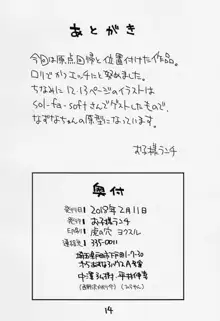 あとがき
今回は原点回帰と位置付けた作品。
ロリでかつエッチに努めました。
ちなみに12・13ページのイラストは
sol-fa-softさんでゲストしたもので、
なずなちゃんの原型になっています。
お子様ランチ
奥付
発行日 2018年2月11日
発行 お子様ランチ
印刷 虎の穴 ヨクスル
連絡先 〒335-0011
14